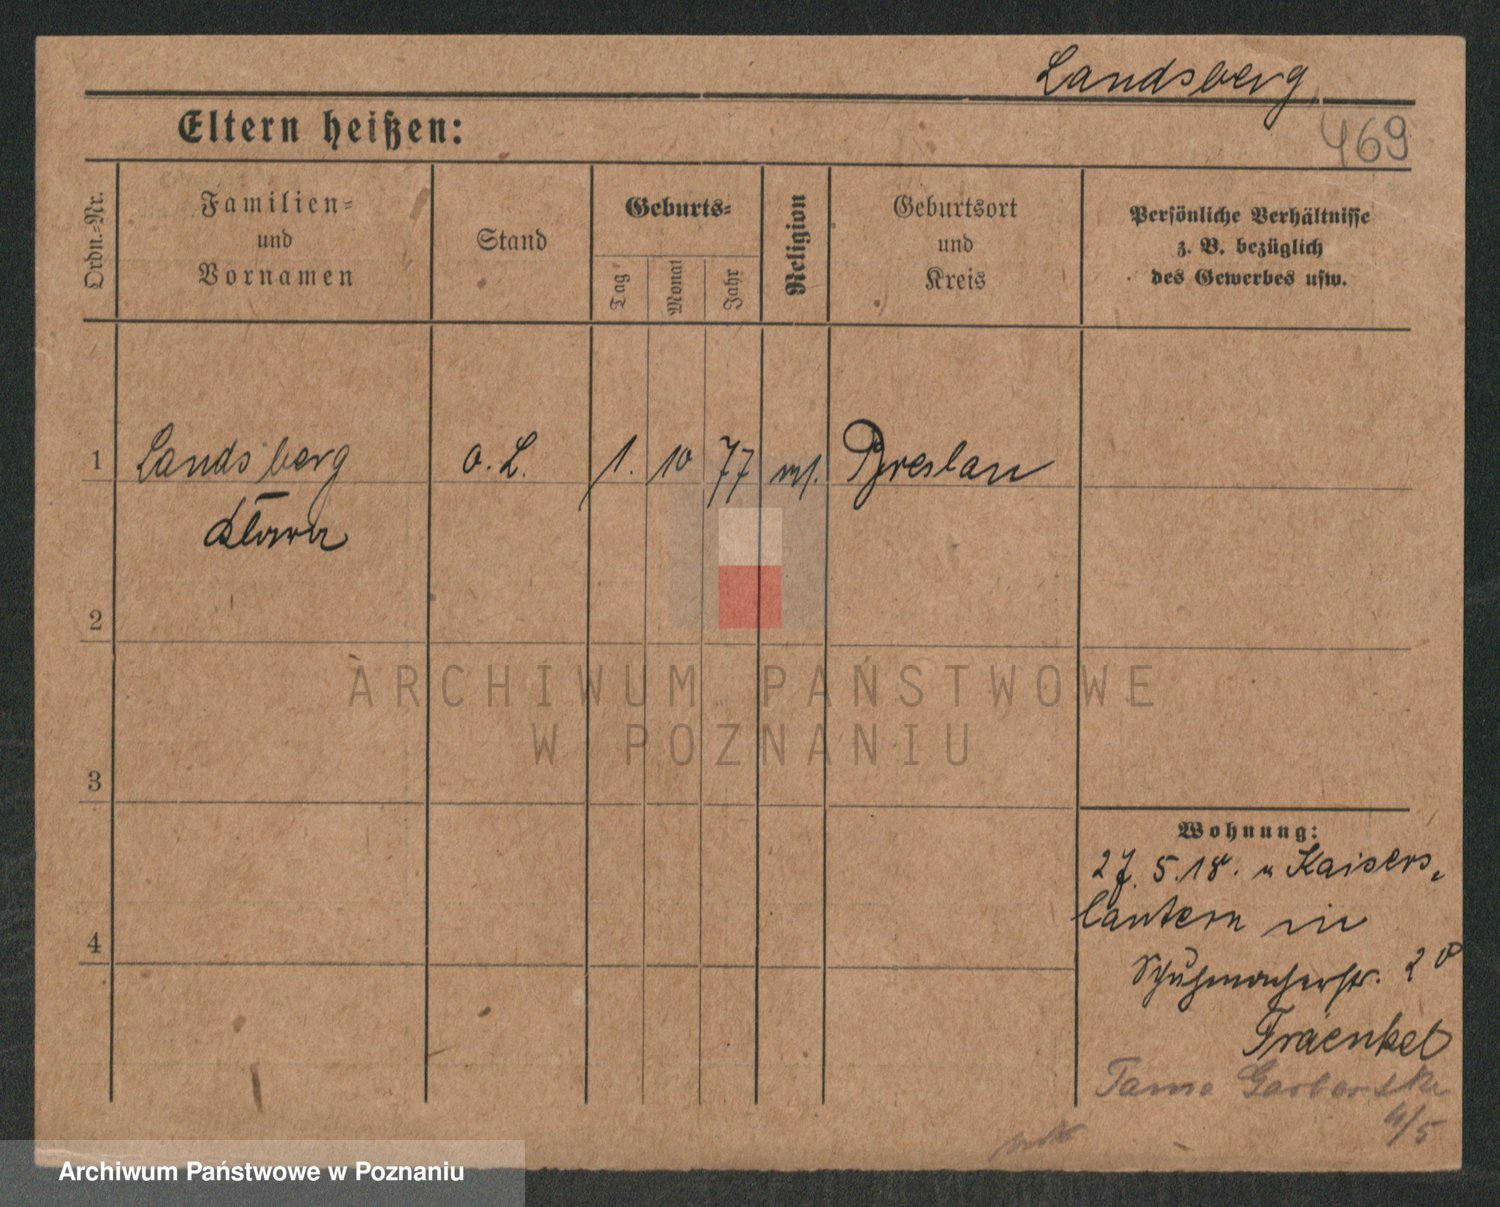 Landsberg
469
Eltern heißen:
Ordn.-Nr.
Familien-
und
Vornamen
Stand
Geburts-
Tag
Monat
Jahr
Religion
Geburtsort
und
Kreis
Persönliche Verhältnisse
z. B. bezüglich
des Gewerbes usw.
1 Landsberg o. L. 1. 10 77 Breslau
Klara
2
3
4
ARCHIWUM PAŃSTWOWE
W POZNANIU
Wohnung:
27. 5. 18. n Kaisers-
lautern in
Schuhmacherstr. 20
Fraenkel
Tama Garbarska
4/5
Archiwum Państwowe w Poznaniu